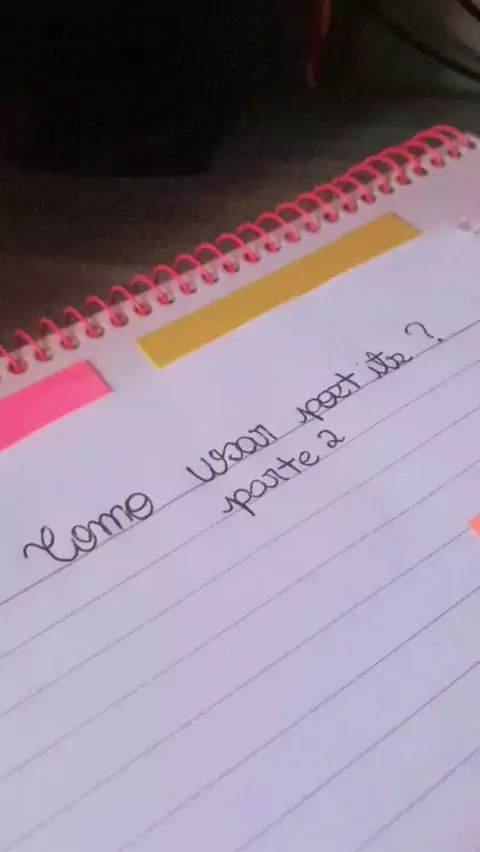 Como usar post its?
parte 2